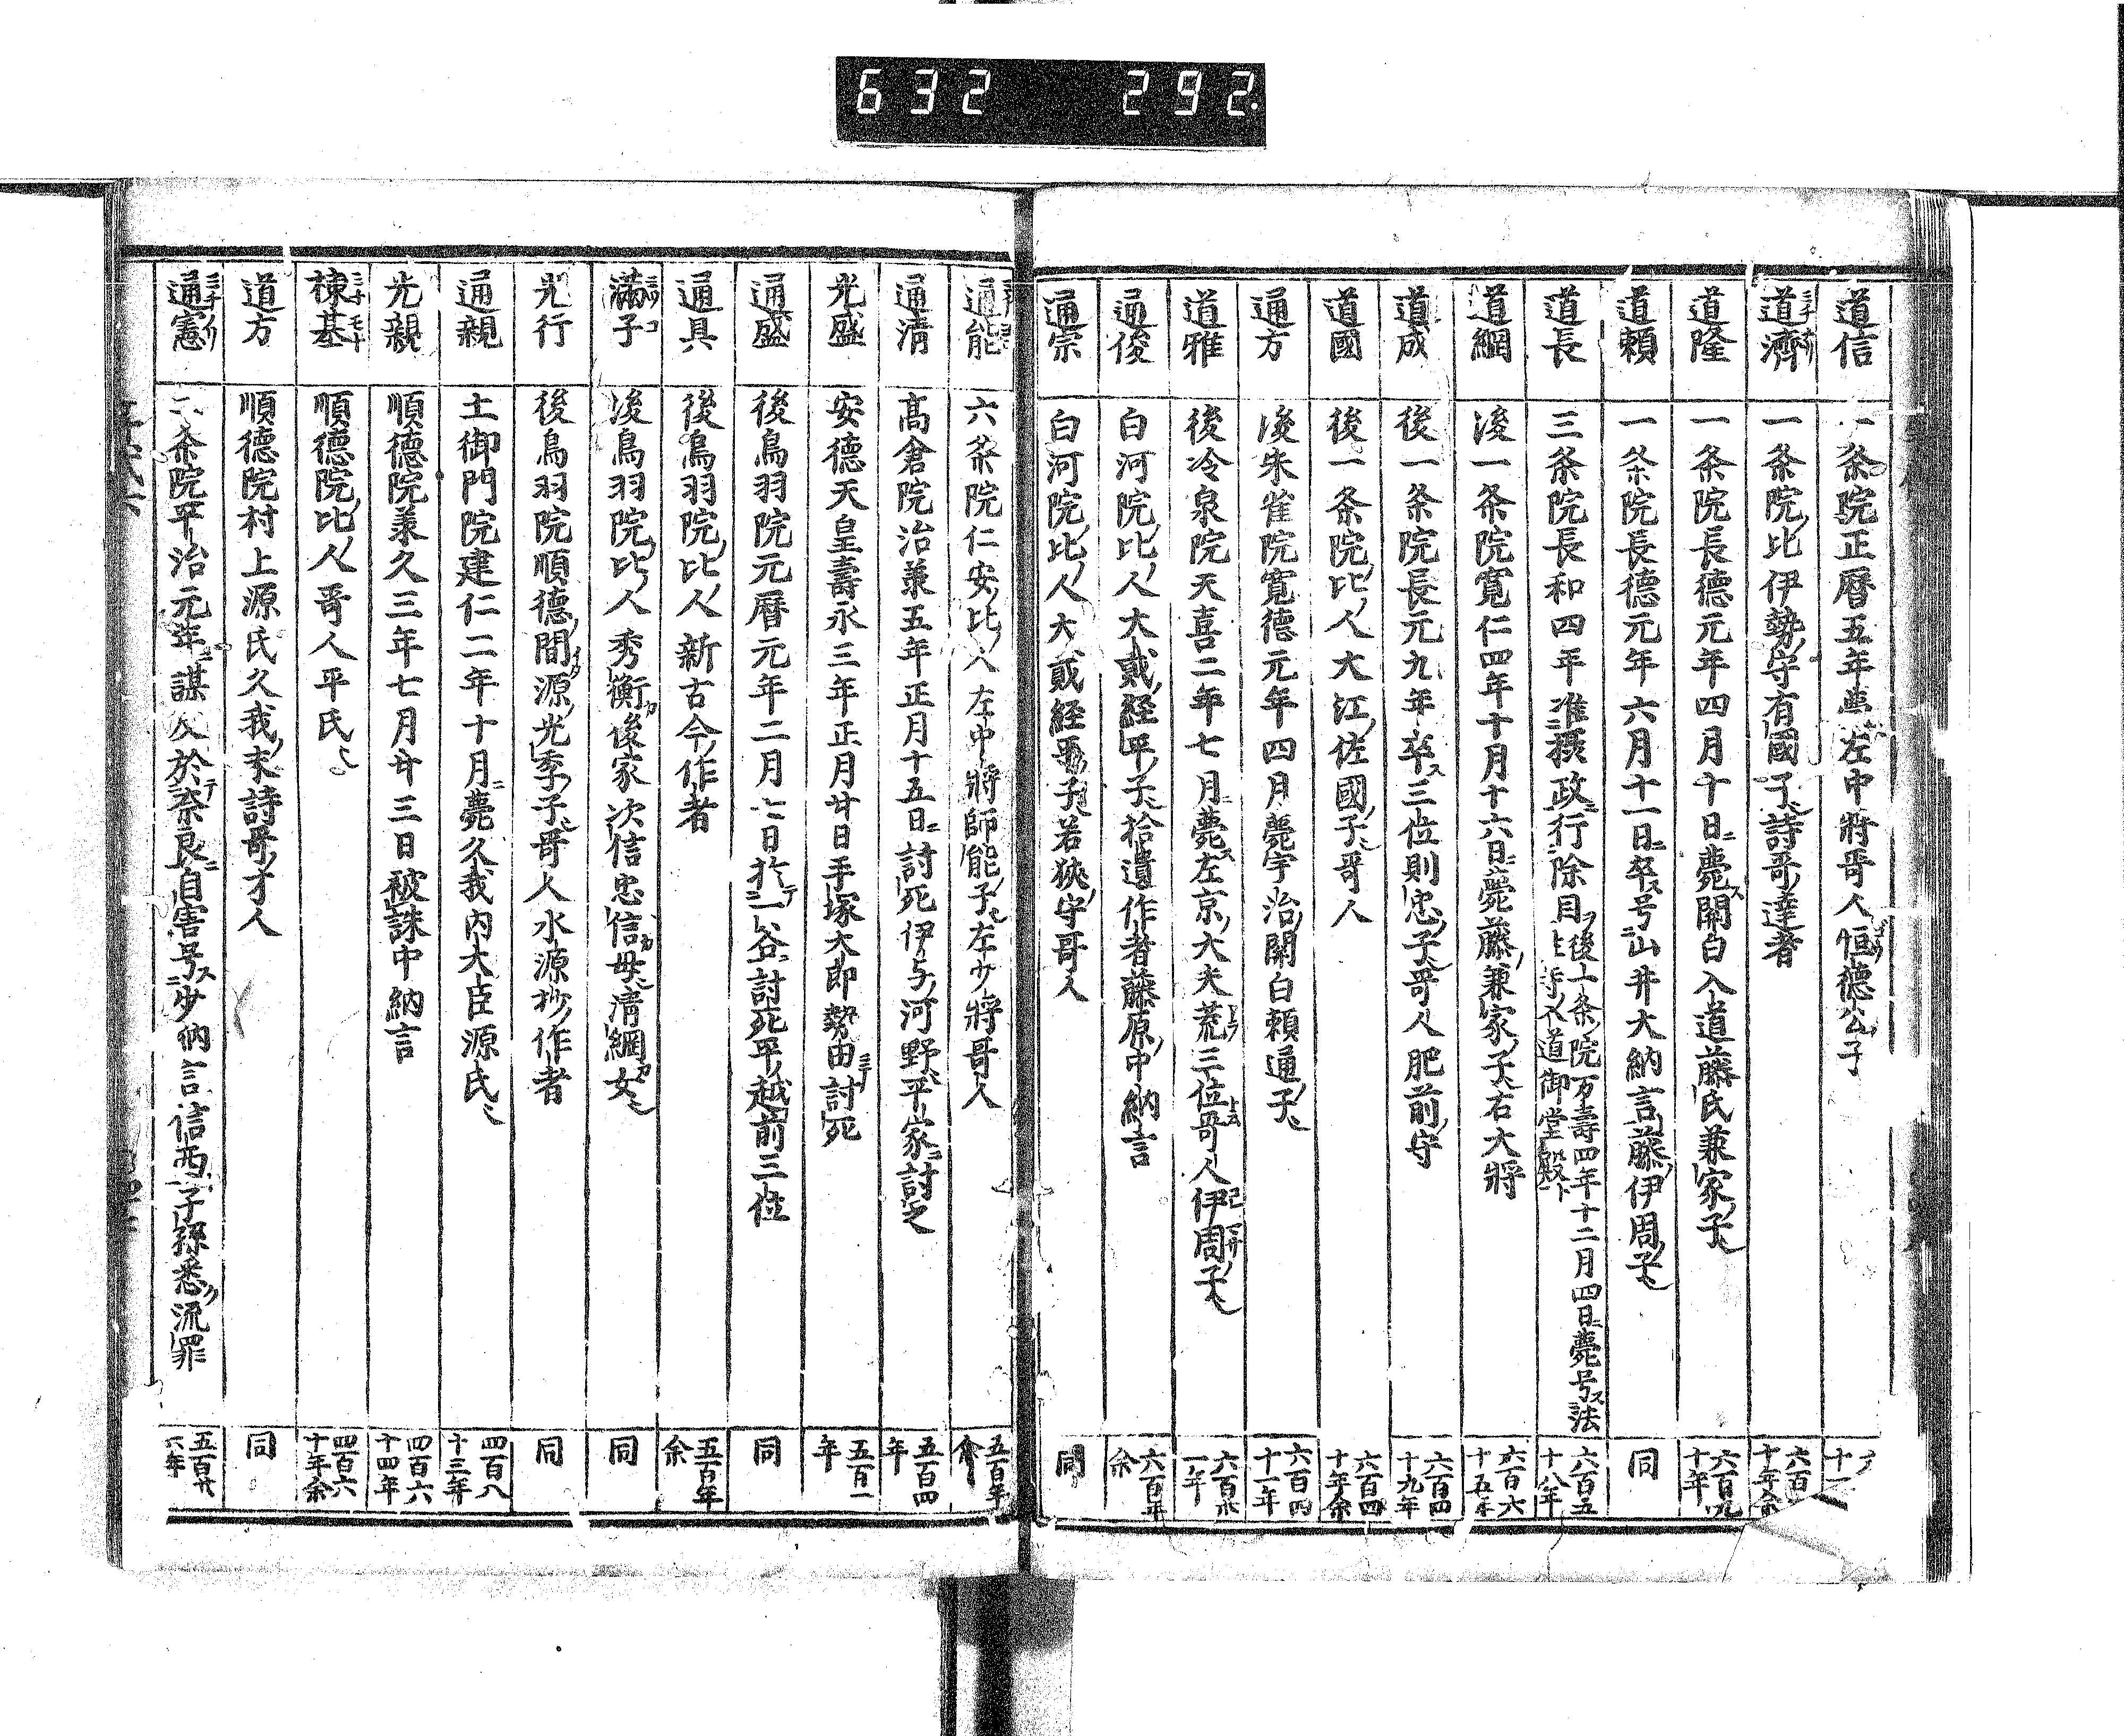 632 292
道信 一条院正暦五年 左中将哥人恒徳公子
道濟 一条院ノ比伊勢ノ守有國子詩哥ノ達者
道隆 一条院長徳元年四月十日ニ薨ス関白入道藤氏兼家ノ子也 六百九十年
道頼 一条院長徳元年六月十一日ニ卒ス号ニ山井大納言ト藤ノ伊周ノ子也 同
道長 三条院長和四年准摂政ニ行除目ヲ後一条ノ院万壽四年十二月四日ニ薨ス号法 入道御堂殿ト 六百五十八年
道綱 後一条院寛仁四年十月十六日ニ薨藤ノ兼家ノ子也右大将 六百六十五年
道成 後一条院長元九年卒ス三位則忠ノ子也哥人肥前ノ守 六百四十九年
道國 後一条院ノ比ノ人大江ノ佐國ノ子也哥人 六百四十年余
通方 後朱雀院寛徳元年四月薨宇治ノ関白頼通ノ子也 六百四十一年
道雅 後冷泉院天喜二年七月ニ薨ス左京ノ大夫荒三位ト云哥人伊周ノ子也
通俊 白河院ノ比ノ人大貳経平ノ子也拾遺作者藤原ノ中納言 六百年余
通宗 白河院ノ比ノ人大貳経平ノ子也若狭ノ守哥人 同
通能 六条院仁安ノ比ノ人左中将師能ノ子也左少将哥人 五百年余
通清 高倉院治兼五年正月十五日ニ討死伊与ノ河野平家ニ討之 五百四年
光盛 安徳天皇壽永三年正月廿日手塚太郎勢田ニ討死 五百一年
通盛 後鳥羽院元暦元年二月七日於テ一ノ谷ニ討死平ノ越前三位 同
通具 後鳥羽院ノ比ノ人新古今ノ作者 五百年余
満子 後鳥羽院ノ比ノ人秀衡カ後家次信忠信カ母清綱カ女也 同
光行 後鳥羽院順徳ノ間源ノ光季ノ子也哥人水源抄ノ作者 同
通親 土御門院建仁二年十月ニ薨久我内大臣源氏也 四百八十三年
光親 順徳院兼久三年七月廿三日被誅中納言 四百六十四年
棟基 順徳院ノ比ノ人哥人平氏也 四百六十年余
道方 順徳院村上源氏久我ノ末詩哥ノ才人 同
通憲 二条院平治元年謀 於テ奈良ニ自害号ス少納言信西ト子孫悉ク流罪 五百廿六年